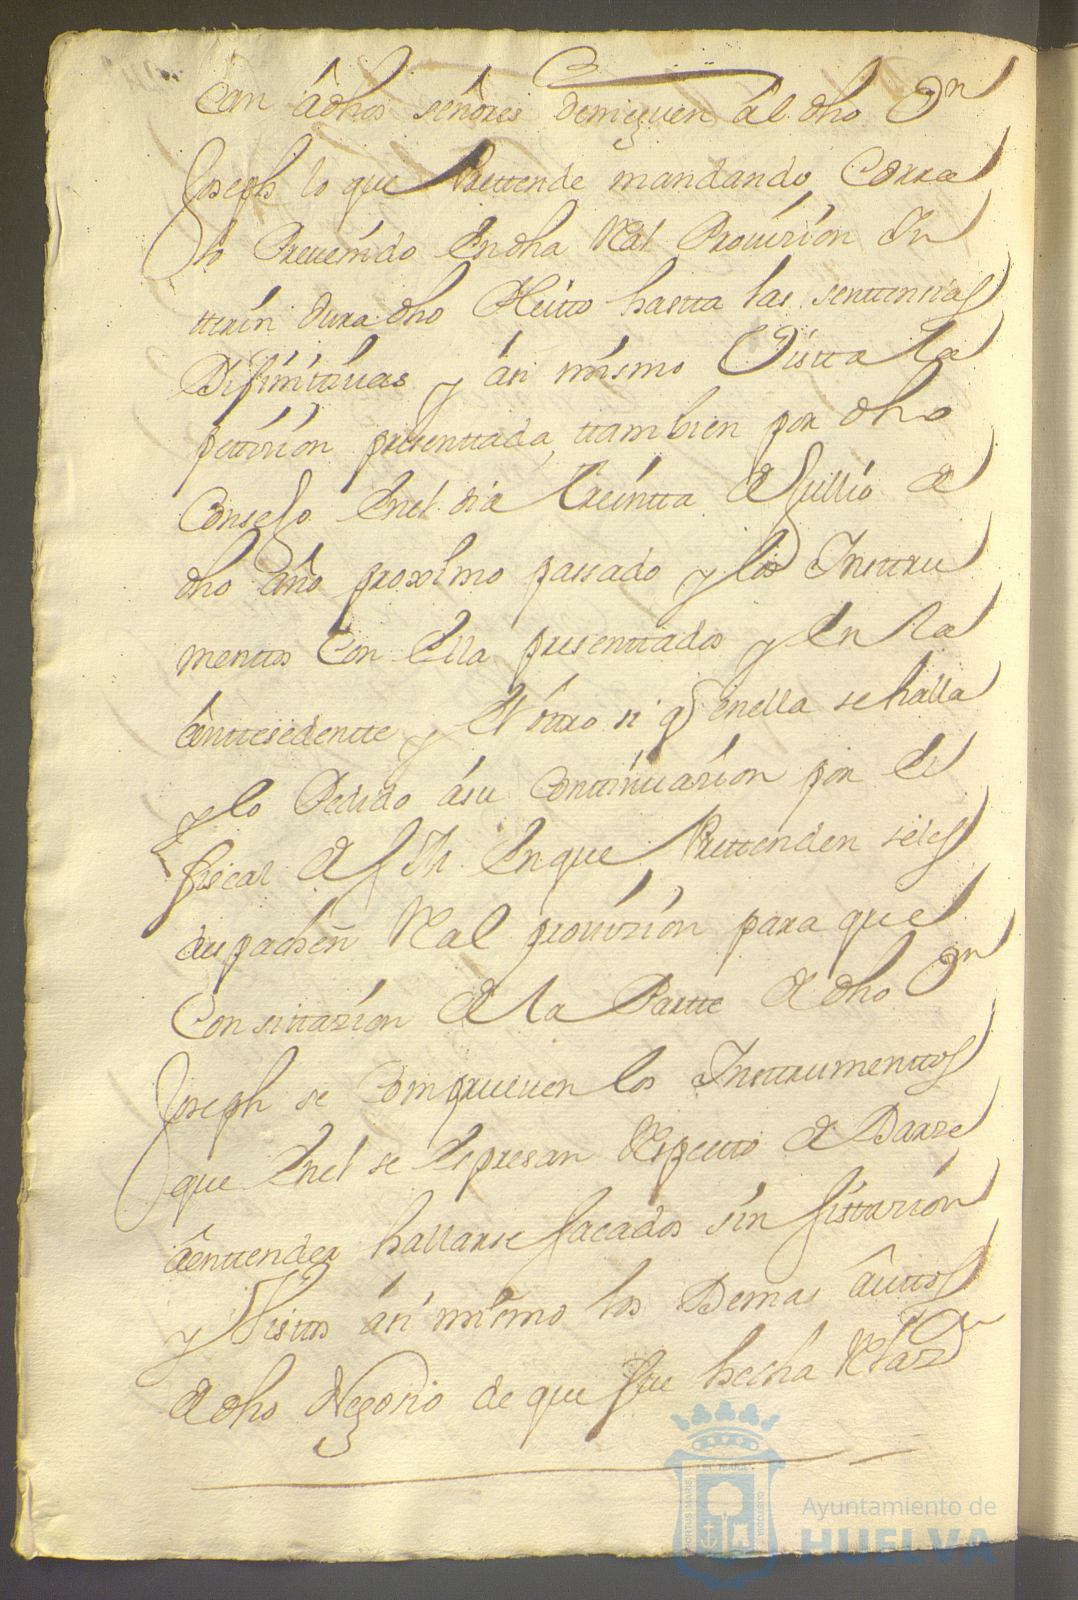 can â dhos señores denieguen âl dho Dn
Joseph lo que Prettende mandando Corra
lo Prevenido En dha Real Provision In
tterin dura dho Pleitto hastta las senttensias
Difinitivas y âsi mismo Vistta la
petizion presenttada ttambien por dho
Consejo Enel dia treintta de Jullio de
dho año proximo passado y los Insttru
mentos Con Ella presenttados y En la
ânttesedentte y El ôtro si qe enella se halla
y lo Pedido âsu Conttinuazion por El
fiscal de S M. En que Prettenden seles
despachen Real provizion para que
Con sittazion de la Partte de dho Dn
Joseph se Comprueuen los Insttrumenttos
que Enel se Espresan Respectto de Darse
âenttender hallarse sacados sin sittazion
y Visttos âsi mismo los Demas âuttos
de dho Negozio de que fue hecha Relazon
Ayuntamiento de
HUELVA